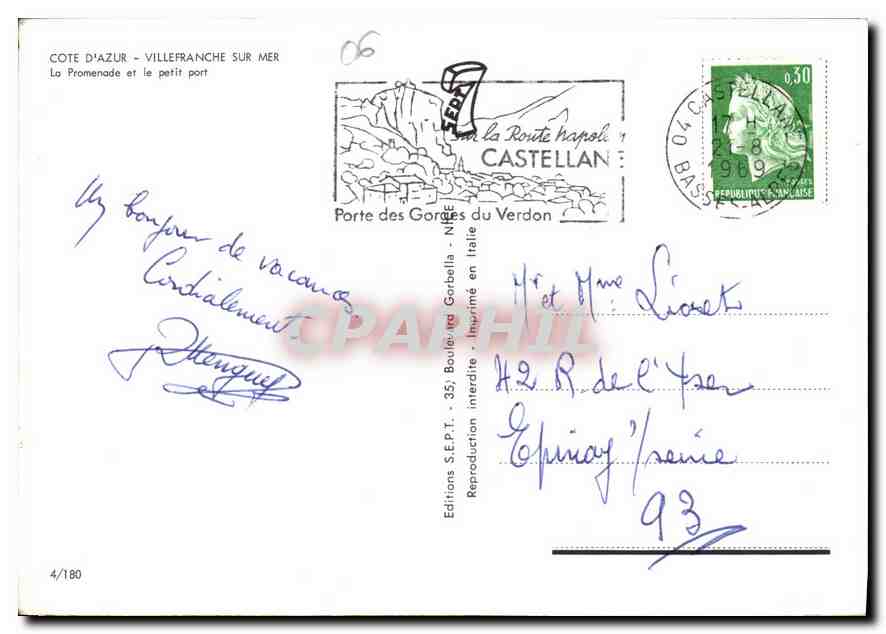 COTE D'AZUR - VILLEFRANCHE SUR MER
La Promenade et le petit port
06
SEPT
Sur la Route Napoléon
CASTELLANE
Porte des Gorges du Verdon
04 CASTELLANE
17 H
2 -8
1969
BASSES-ALPES
0,30
REPUBLIQUE FRANÇAISE
Un bonjour de vacances
Cordialement
Editions S.E.P.T. - 35, Boulevard Gorbella - NICE
Reproduction interdite - Imprimé en Italie
CPARHIL
Mr et Mme Lioret
42 R. de l'Yser
Epinay s/seine
93
4/180